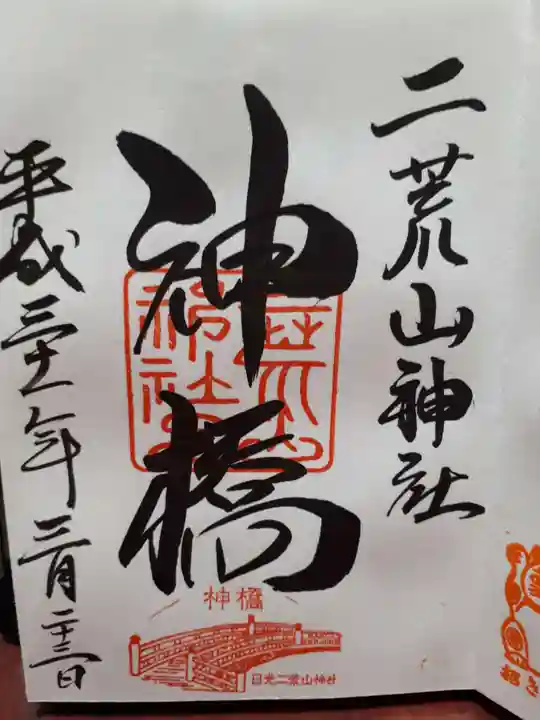 二荒山神社
神橋
二荒山神社
神橋
日光二荒山神社
平成三十一年三月二十三日
招き